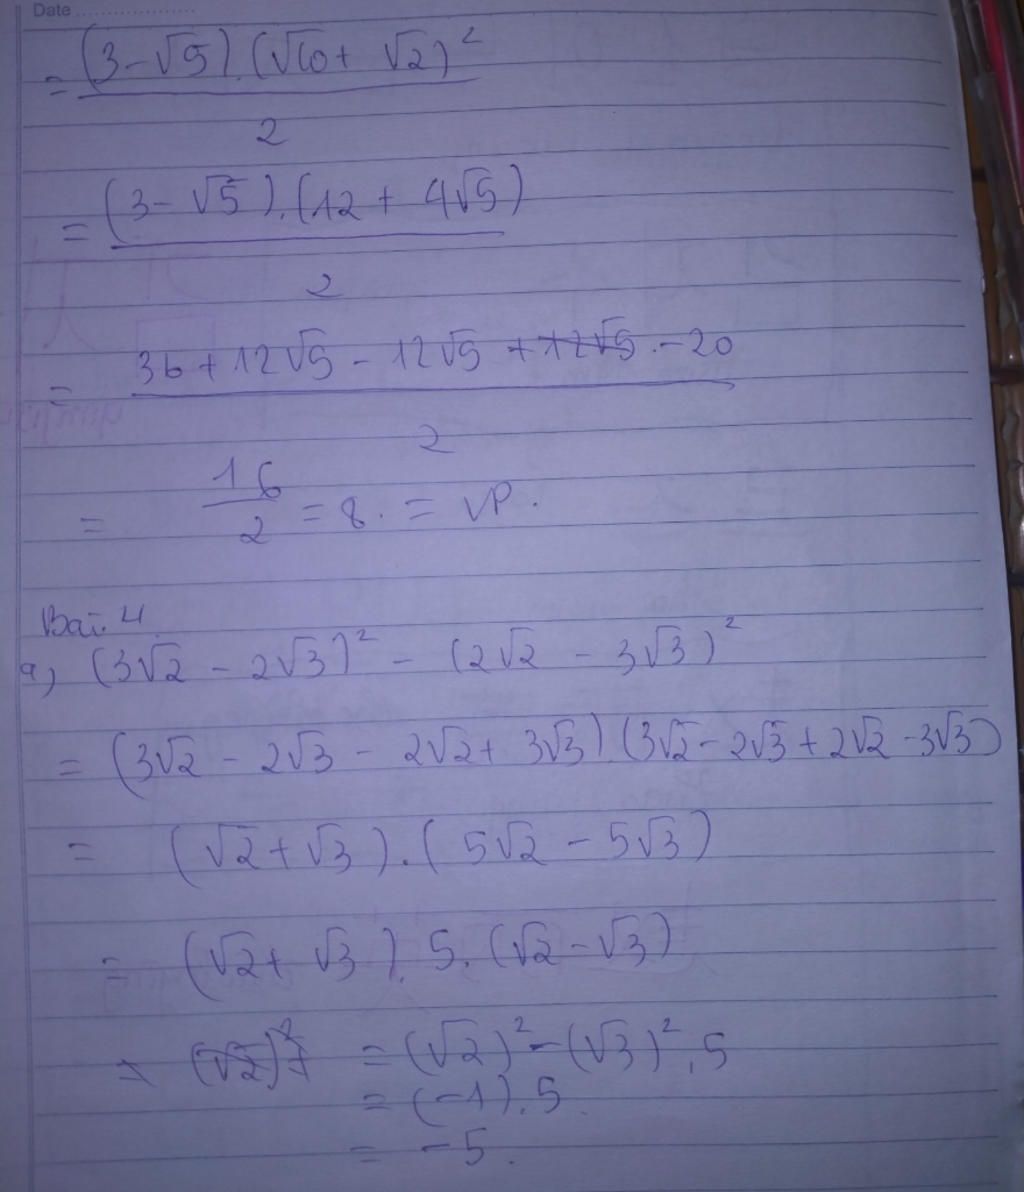 Date
= (3-√5).(√10+ √2)²
2
= (3- √5).(12 + 4√5)
2
= 36+12√5 - 12√5 + 12√5 . - 20
2
= 16/2 = 8. = VP.
Bài 4
a, (3√2 - 2√3)² - (2√2 - 3√3)²
= (3√2 - 2√3 - 2√2+ 3√3).(3√2 - 2√3 + 2√2 - 3√3)
= (√2+√3).(5√2 - 5√3)
= (√2+ √3). 5. (√2 - √3)
= (√2)² = (√2)² - (√3)² . 5
= (-1).5.
= -5.